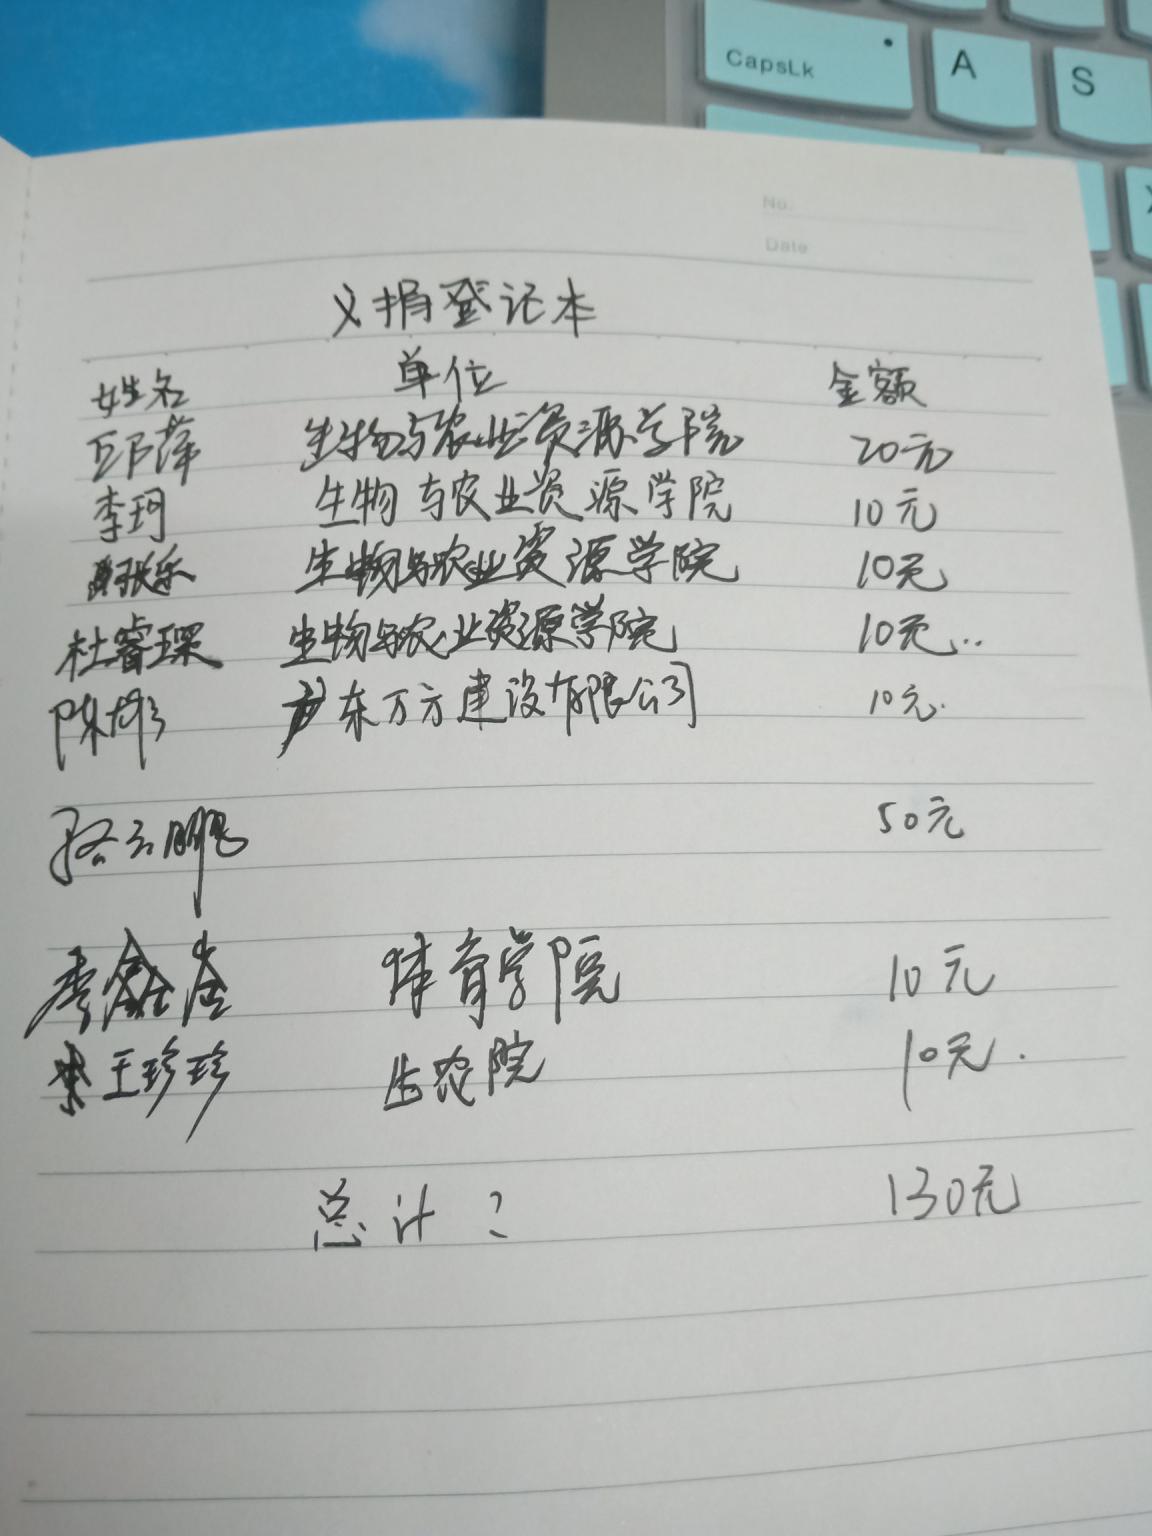 CapsLk A S
No.
Date
义捐登记本
姓名 单位 金额
邱萍 生物与农业资源学院 20元
李珂 生物与农业资源学院 10元
张乐 生物与农业资源学院 10元
杜睿琛 生物与农业资源学院 10元..
陈彬 广东万方建设有限公司 10元.
骆云鹏 50元
李鑫 体育学院 10元
王珍珍 生农院 10元.
总计: 130元